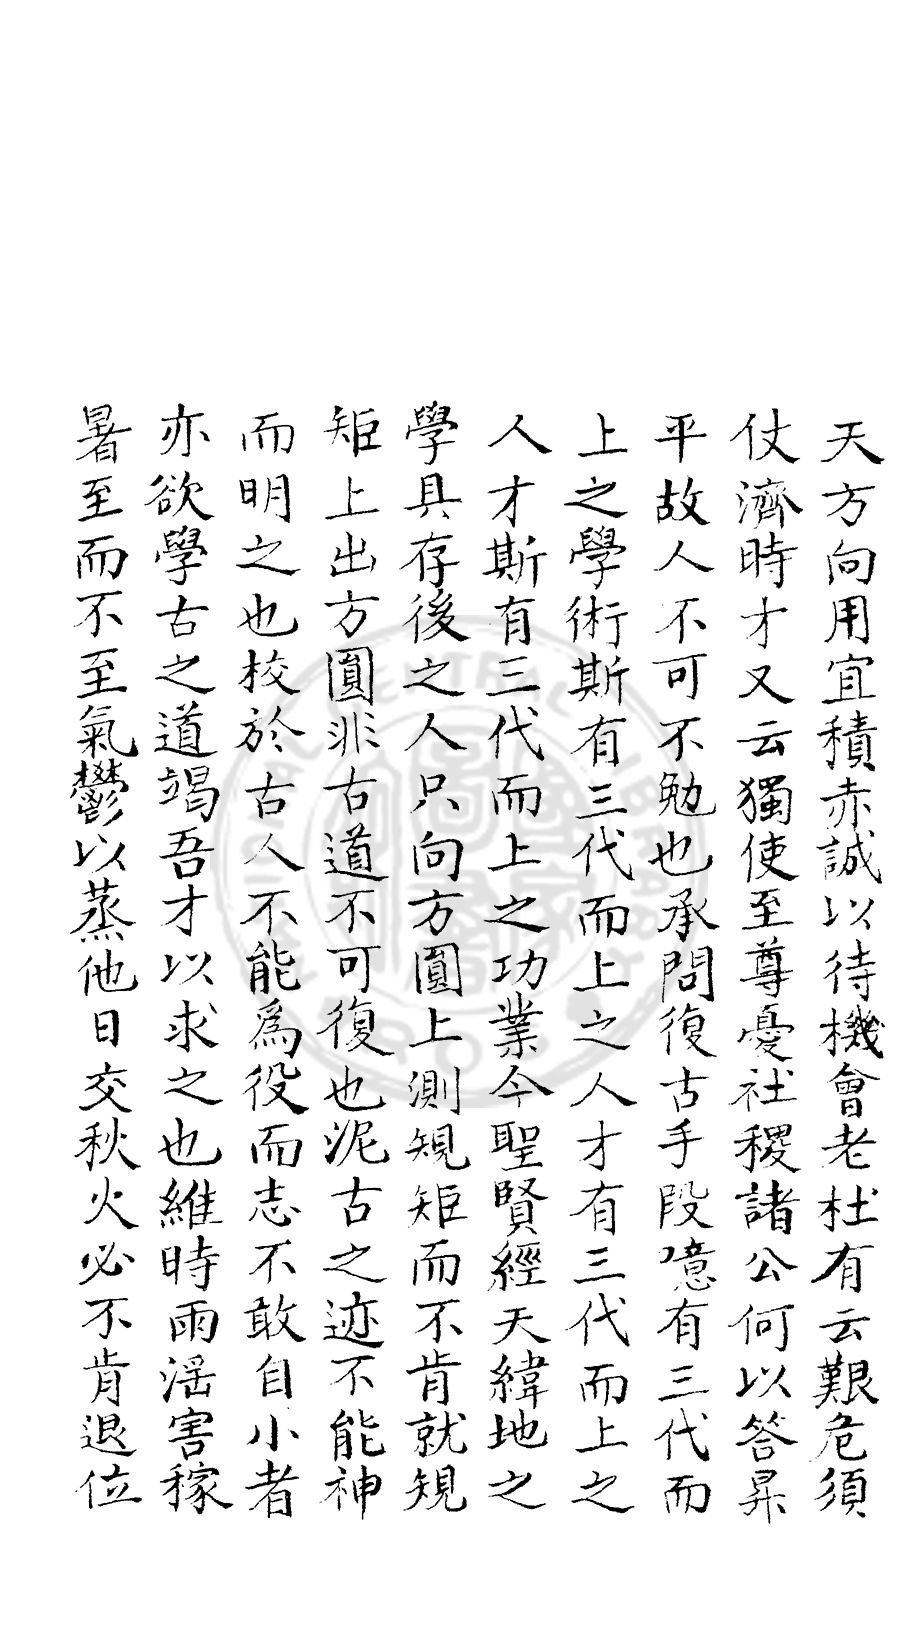 天方向用宜積赤誠以待機會老杜有云艱危須
仗濟時才又云獨使至尊憂社稷諸公何以答昇
平故人不可不勉也承問復古手段噫有三代而
上之學術斯有三代而上之人才有三代而上之
人才斯有三代而上之功業今聖賢經天緯地之
學具存後之人只向方圓上測規矩而不肯就規
矩上出方圓非古道不可復也泥古之迹不能神
而明之也校於古人不能爲役而志不敢自小者
亦欲學古之道竭吾才以求之也維時雨滛害稼
暑至而不至氣鬱以蒸他日交秋火必不肯退位